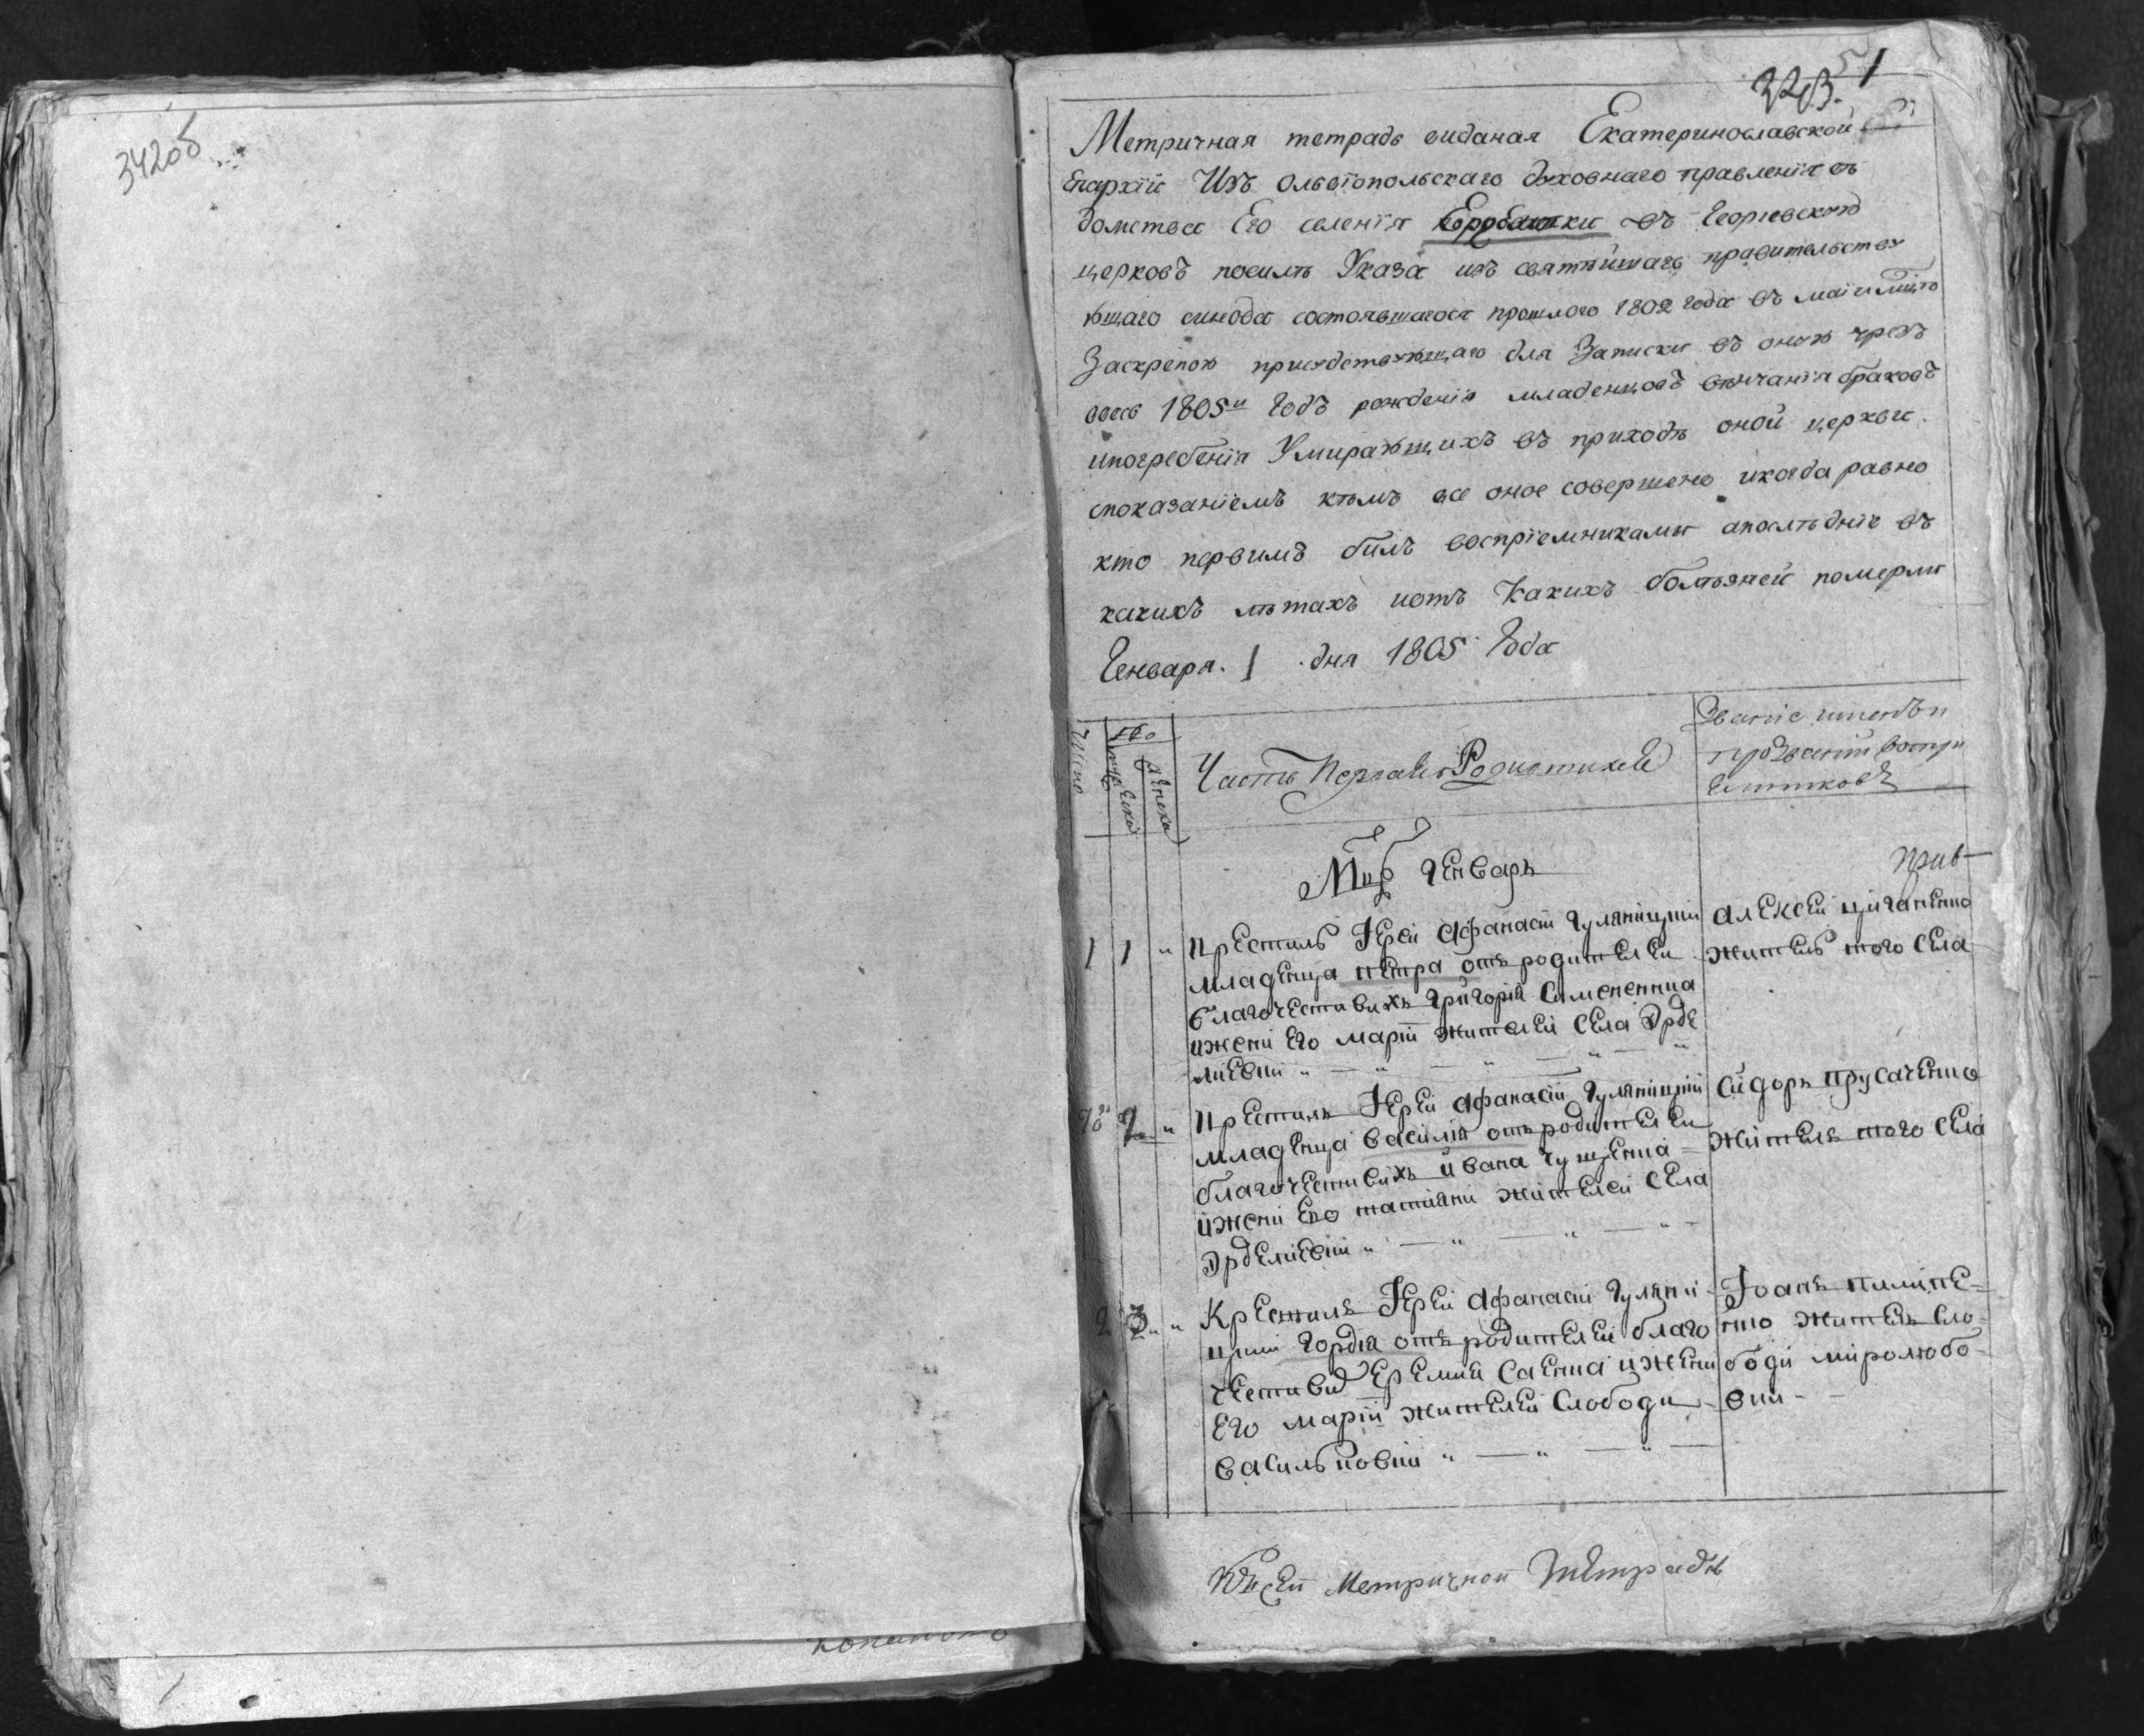 342об
1
Метричная тетрадь виданая Екатеринославской
Епархїи Изъ Ольвїопольскаго духовнаго правленїя въ
домства Его селенїя въ Георгевскую
церковъ посилѣ Указа изъ святѣйшаго правительству
ющаго синода состоявшагося прошлого 1802 года въ маїи мцѣ
Заскрепою присудствующаго для Записки въ оную чрезъ
весь 1805й Годъ рожденїя младенцовъ вѣнчанїя браковъ
ипогребенїя Умирающихъ въ приходѣ оной церкви
споказанїемъ кѣмъ все оное совершено икогда равно
кто первимъ билъ воспрїемникамы апослѣднїе въ
какихъ лѣтахъ иотъ Какихъ болѣзней померли
Генваря. 1 дня 1805 Года
Число
Часть Первая о Родившихся
Званїе именъ и
прозванїи воспри
емниковъ
Мцъ Генварь
1 1 " крестилъ Іерей Афанасїй Гуляницкїй
младенца петра отъ родителей
благочестивихъ Григорїя Семененка
ижени Его марїи жителей села Эрде
лиевки " — " — " — "
Алексей циганенко
житель того села
2 " крестилъ Іерей Афанасїй Гуляницкїй
младенца василїя отъ родителей
благочестивихъ ивана гущенка =
ижени Его татїяни жителей села
Эрделиевки " — " — " — " —
Сидоръ прусаченко
житель того села
2 3 " " Крестилъ Іерей Афанасїй Гуляни
цкїй гордїя отъ родителей благо
честивих Еремии Саенка ижени
Его марїи жителей Слободи
васильковки " — " — " —
Іоанъ пилипе=
нко житель сло=
боди миролюбо=
вки - -
Метричной Тетрадѣ